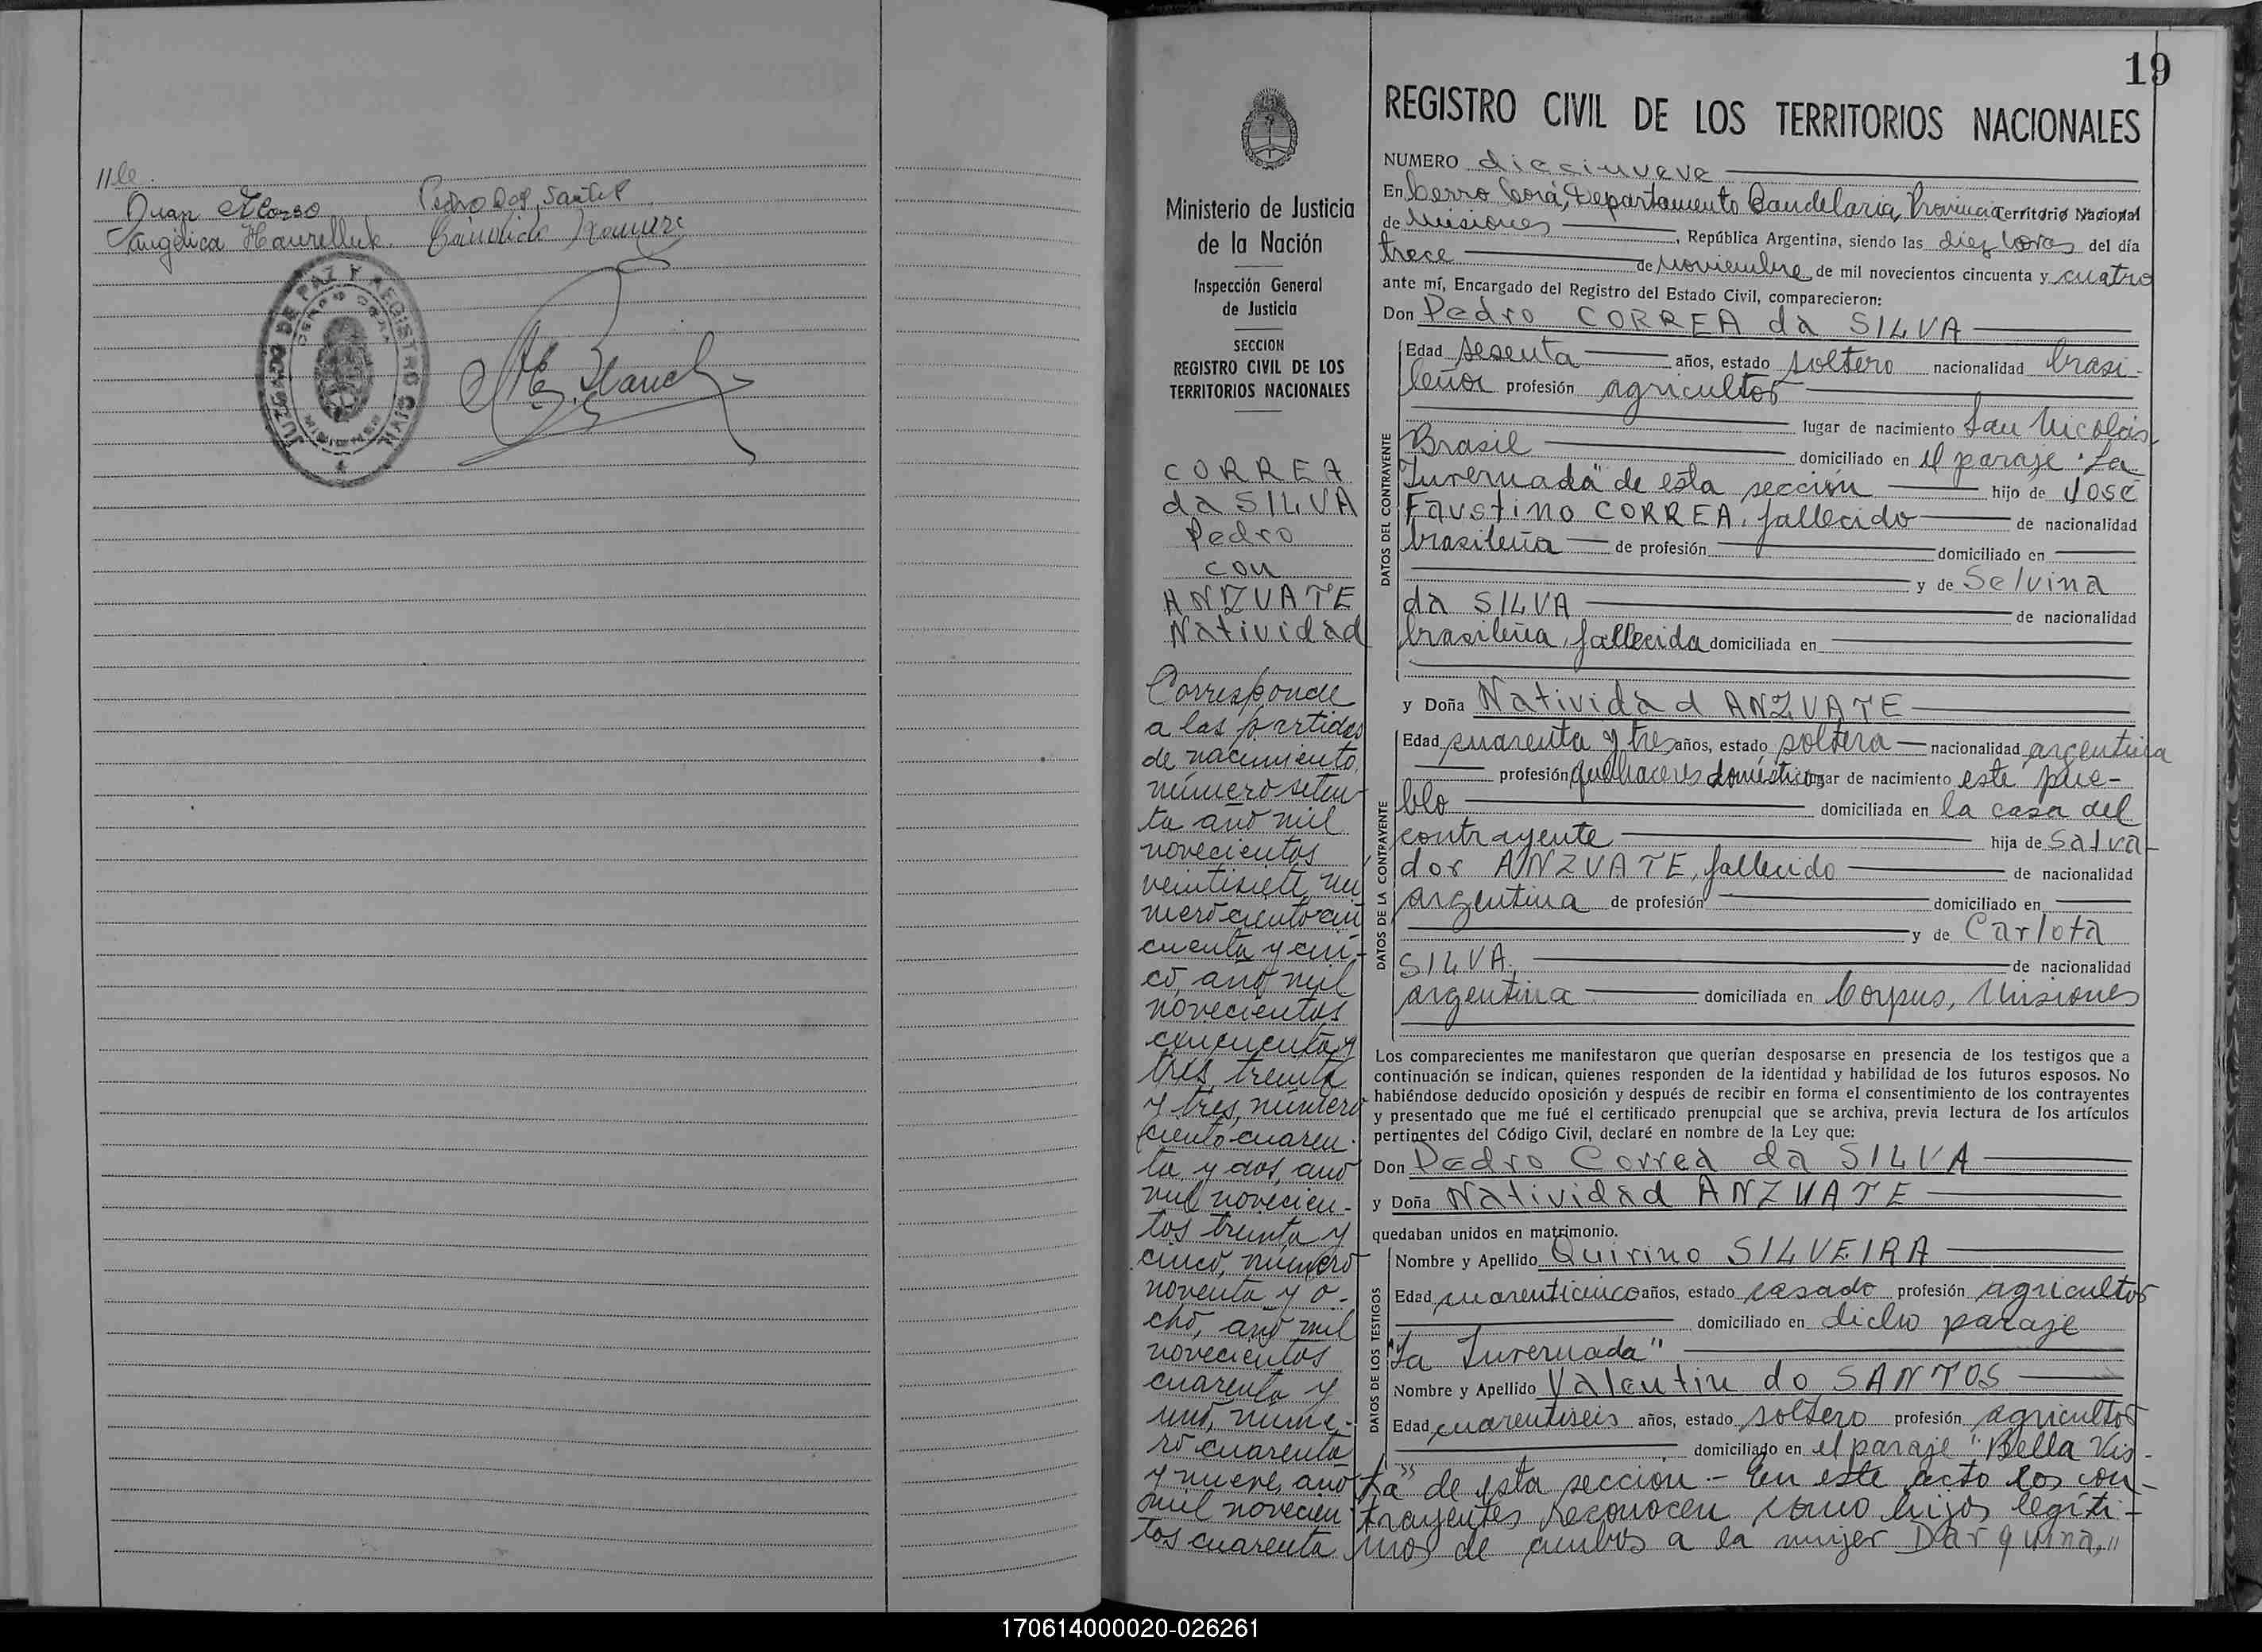 11 le.
Juan Alonso Pedro Dos Santos
Angélica Haurelluk. Candido Ramirez
JUZGADO DE PAZ Y REGISTRO CIVIL
CERRO CORA
MISIONES
19
REGISTRO CIVIL DE LOS TERRITORIOS NACIONALES
Ministerio de Justicia
de la Nación
Inspección General
de Justicia
SECCION
REGISTRO CIVIL DE LOS
TERRITORIOS NACIONALES
CORREA
da SILVA
Pedro
con
ANZUATE
Natividad
Corresponde
a las partidas
de nacimiento,
número seten-
ta año mil
novecientos
veintisiete, nú
mero ciento cin
cuenta y cin-
co, año mil
novecientos
cincuenta y
tres, treinta
y tres, número
ciento cuaren-
ta y dos, año
mil novecien-
tos treinta y
cinco, número
noventa y o-
cho, año mil
novecientos
cuarenta y
uno, núme-
ro cuarenta
y nueve, año
mil novecien
tos cuarenta
NUMERO diecinueve
En Cerro Corá, Departamento Candelaria, Provincia Territorio Nacional
de Misiones, República Argentina, siendo las diez horas del día
trece de noviembre de mil novecientos cincuenta y cuatro
ante mí, Encargado del Registro del Estado Civil, comparecieron:
Don Pedro CORREA da SILVA
DATOS DEL CONTRAYENTE
Edad sesenta años, estado soltero nacionalidad brasi-
leña profesión agricultor
lugar de nacimiento San Nicolás-
Brasil domiciliado en el paraje "La
Invernada" de esta sección hijo de José
Faustino CORREA, fallecido de nacionalidad
brasileña de profesión domiciliado en
y de Selvina
da SILVA de nacionalidad
brasileña, fallecida domiciliada en
y Doña Natividad ANZUATE
DATOS DE LA CONTRAYENTE
Edad cuarenta y tres años, estado soltera nacionalidad argentina
profesión quehaceres domésticos lugar de nacimiento este pue-
blo domiciliada en la casa del
contrayente hija de Salva-
dor ANZUATE, fallecido de nacionalidad
argentina de profesión domiciliado en
y de Carlota
SILVA, de nacionalidad
argentina domiciliada en Corpus, Misiones
Los comparecientes me manifestaron que querían desposarse en presencia de los testigos que a
continuación se indican, quienes responden de la identidad y habilidad de los futuros esposos. No
habiéndose deducido oposición y después de recibir en forma el consentimiento de los contrayentes
y presentado que me fué el certificado prenupcial que se archiva, previa lectura de los artículos
pertinentes del Código Civil, declaré en nombre de la Ley que:
Don Pedro Correa da SILVA
y Doña Natividad ANZUATE
quedaban unidos en matrimonio.
DATOS DE LOS TESTIGOS
Nombre y Apellido Quirino SILVEIRA
Edad cuarenticinco años, estado casado profesión agricultor
domiciliado en dicho paraje
"La Invernada"
Nombre y Apellido Valentin do SANTOS
Edad cuarentiseis años, estado soltero profesión agricultor
domiciliado en el paraje "Bella Vis-
ta" de esta sección.- En este acto los con-
trayentes reconocen como hijos legíti-
mos de ambos a la mujer Darquina,"
170614000020-026261